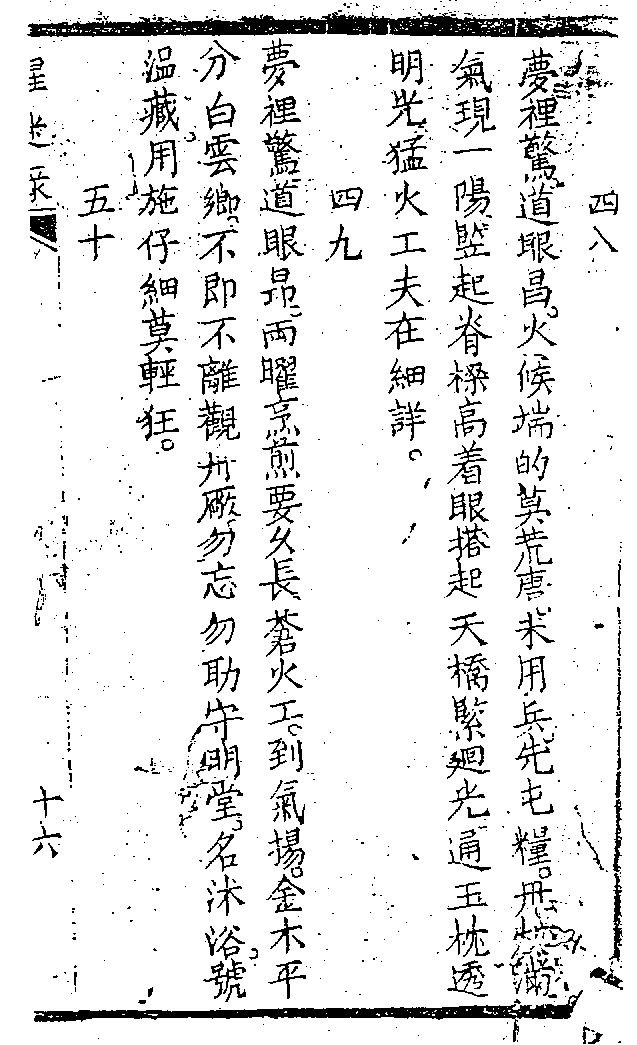 四八
夢裡驚道眼昌。火候端的莫荒唐。未用兵先屯糧。丹
氣現一陽。竪起脊樑高着眼。搭起天橋緊。廻光通玉枕透
明光。猛火工夫在細詳。
四九
夢裡驚道眼昂。兩曜烹煎要久長。蒼火工。到氣揚。金木平
分白雲鄉。不即不離觀爿厰。勿忘勿助守明堂。名沐浴。號
温藏。用施仔細莫輕狂。
五十
十六